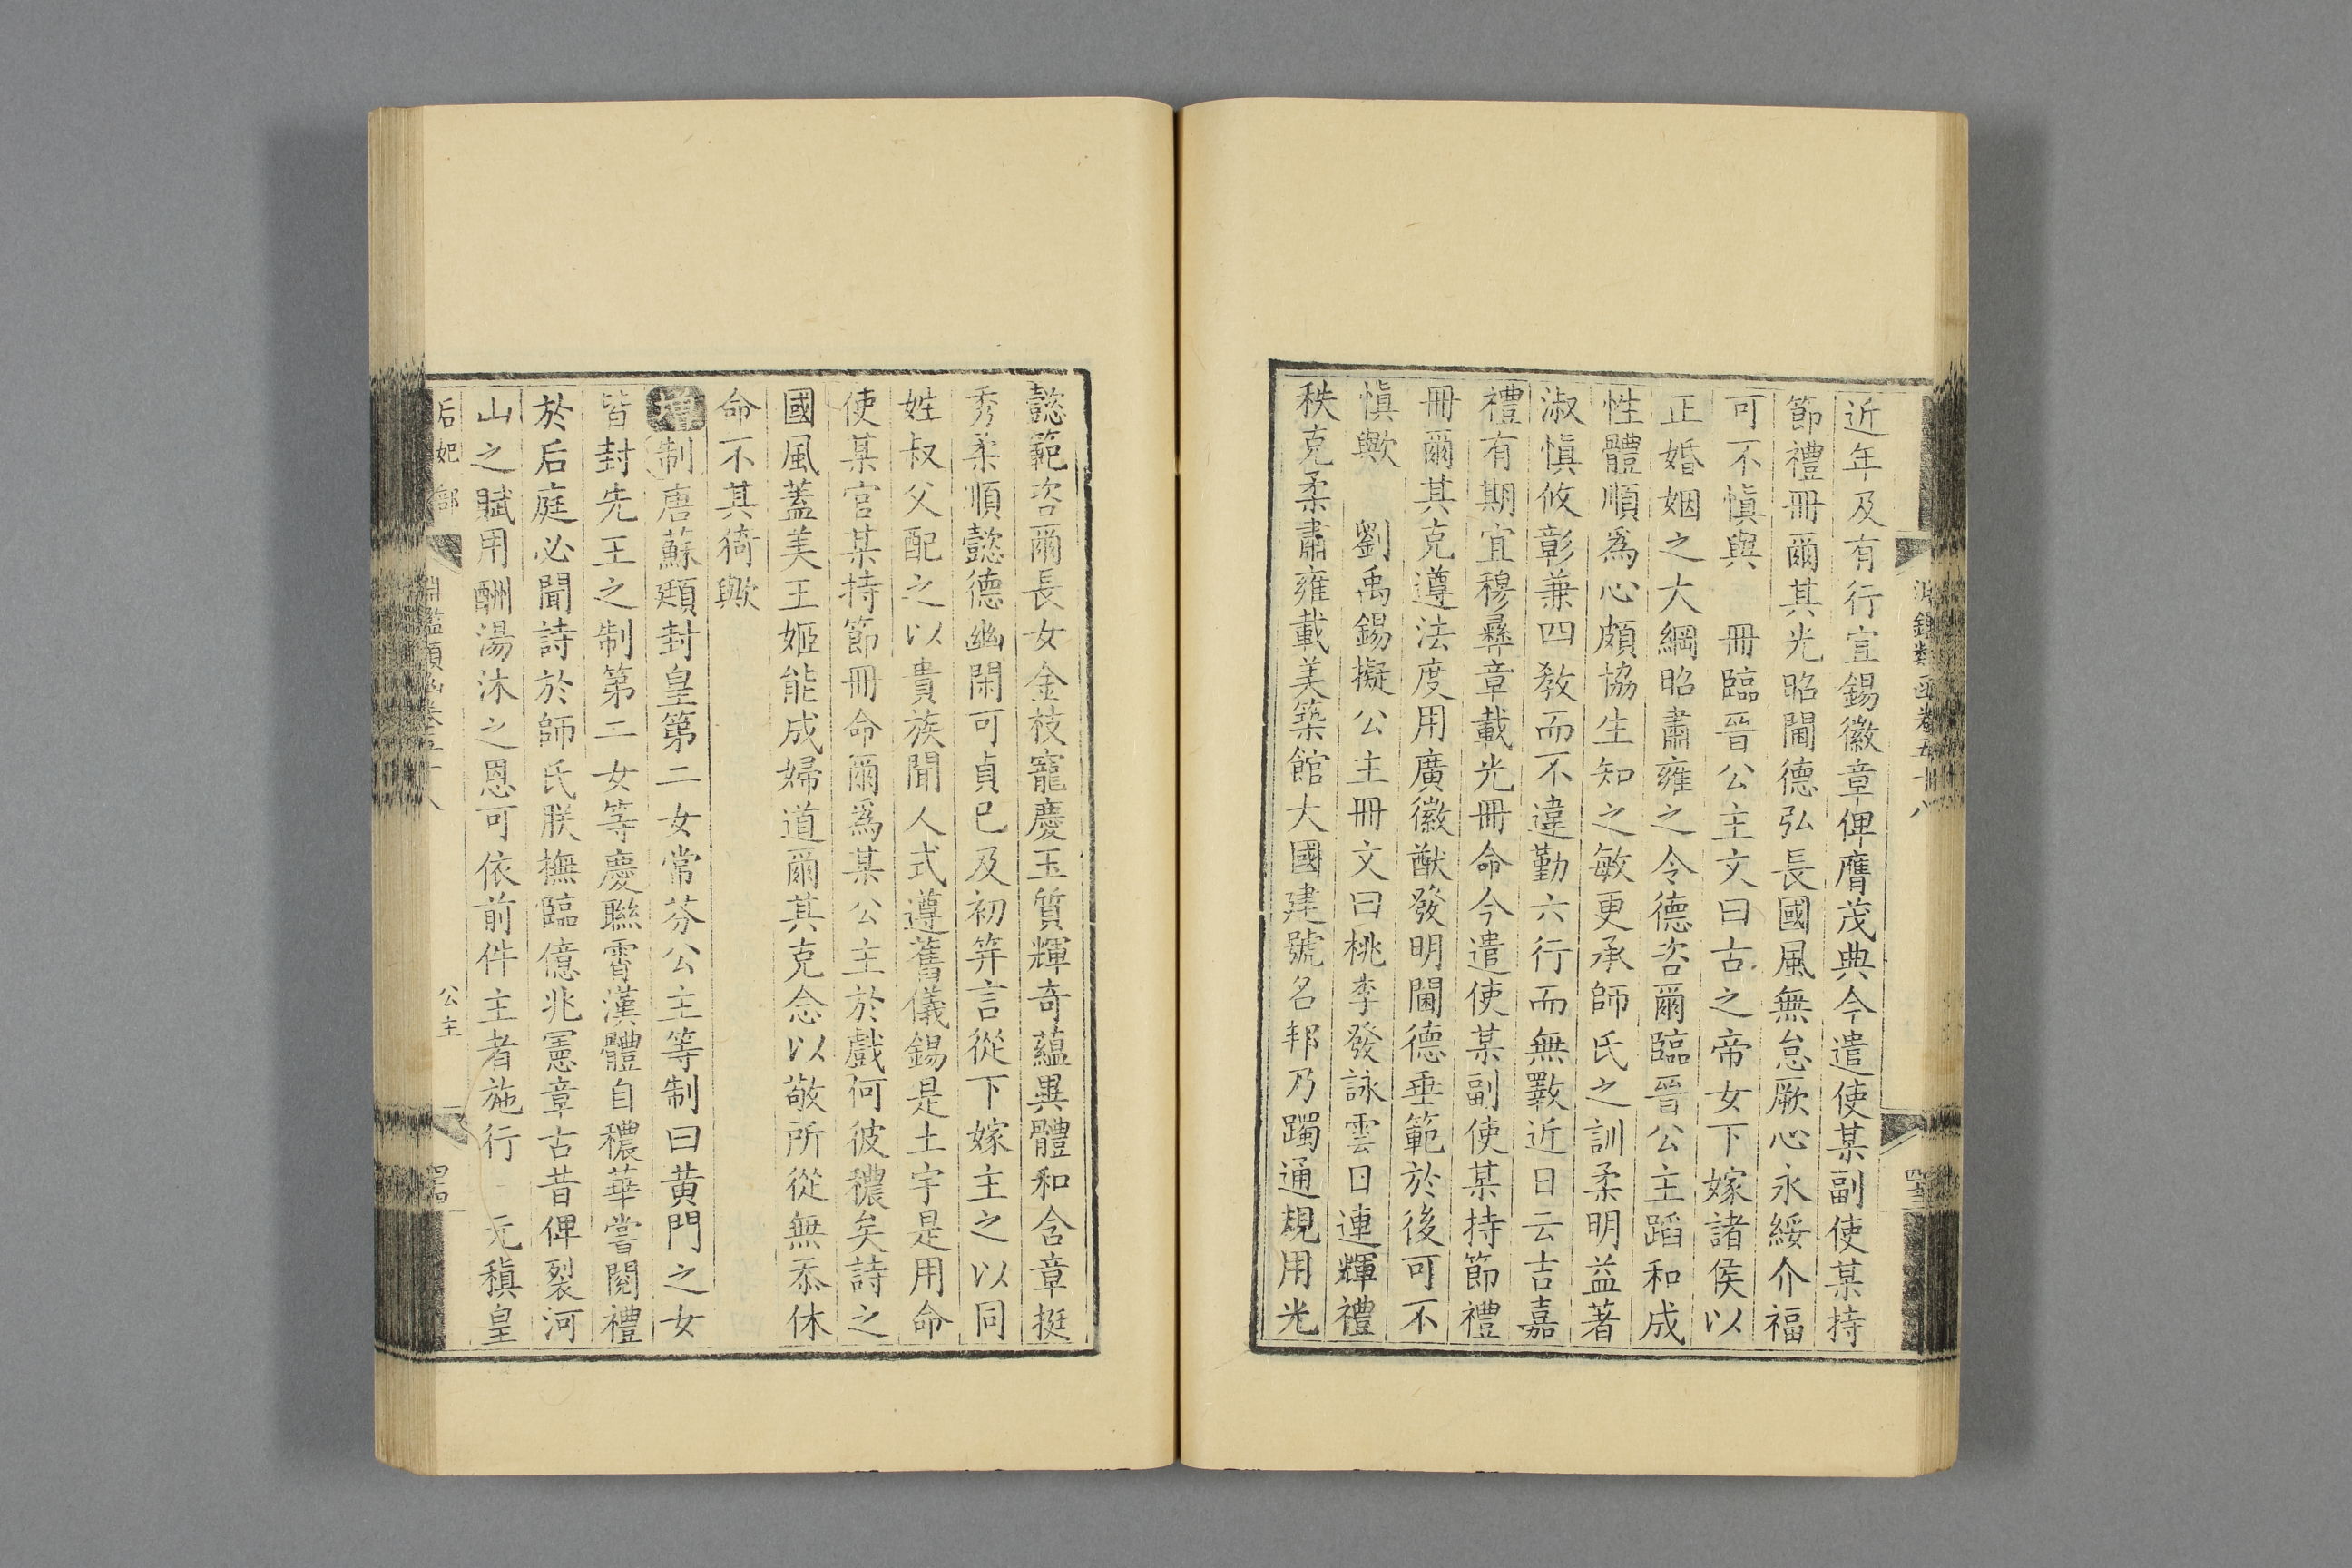 近年及有行宜錫徽章俾膺茂典今遣使某副使某持
節禮冊爾其光昭閫德弘長國風無怠厥心永綏介福
可不慎與　冊臨晉公主文曰古之帝女下嫁諸侯以
正婚姻之大綱昭肅雍之令德咨爾臨晉公主蹈和成
性體順為心頗協生知之敏更承師氏之訓柔明益著
淑慎攸彰兼四教而不違勤六行而無斁近日云吉嘉
禮有期宜穆彝章載光冊命今遣使某副使某持節禮
冊爾其克遵法度用廣徽猷發明閫德垂範於後可不
慎歟　劉禹錫擬公主冊文曰桃李發詠雲日連輝禮
秩克柔肅雍載美築館大國建號名邦乃躅通規用光
懿範咨爾長女金枝寵慶玉質輝奇蘊異體和含章挺
秀柔順懿德幽閑可貞已及初笄言從下嫁主之以同
姓叔父配之以貴族聞人式遵舊儀錫是土宇是用命
使某官某持節冊命爾為某公主於戲何彼穠矣詩之
國風蓋美王姬能成婦道爾其克念以敬所從無忝休
命不其猗歟
增制唐蘇頲封皇第二女常芬公主等制曰黃門之女
皆封先王之制第二女等慶聯霄漢體自穠華嘗閱禮
於后庭必聞詩於師氏朕撫臨億兆憲章古昔俾裂河
山之賦用酬湯沐之恩可依前件主者施行　元稹皇
后妃部　淵鑑類函卷五十八　公主